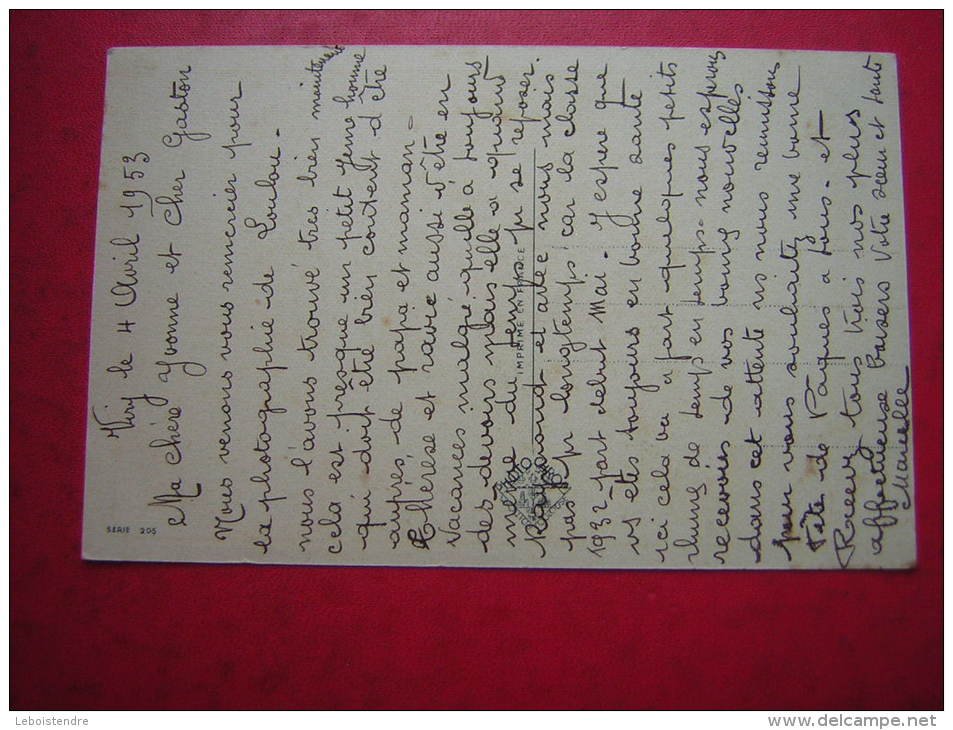 Viry le 4 Avril 1953
Ma chère Yvonne et Cher Gaston
Nous venons vous remercier pour
la photographie de Loulou.
nous l'avons trouvé très bien maintenant
cela est presque un petit jeune homme
qui doit être bien content d'être
auprès, de papa et maman.
Thérèse et ravie aussi d'être en
Vacances malgré quelle à toujours
des devoirs mais elle a quand
même du temps pr se reposer.
Raymond et avec nous mais
pas pr longtemps car la classe
1932 part debut Mai. J'espere que
vs êtes toujours en bonne santé
ici cela va a part quelques petits
rhums de temps en temps. nous esperons
recevoir de vos bonnes nouvelles
dans cet attente ns nous reunissons
pour vous souhaité une bonne
Fête de Pâques a tous. et
Recevez tous trois nos plus
affectueux baisers Votre sœur et tante
Marcelle
SÉRIE 205
IMPRIMÉ EN FRANCE
PHOTO
Leboistendre
http://www.delcampe.net